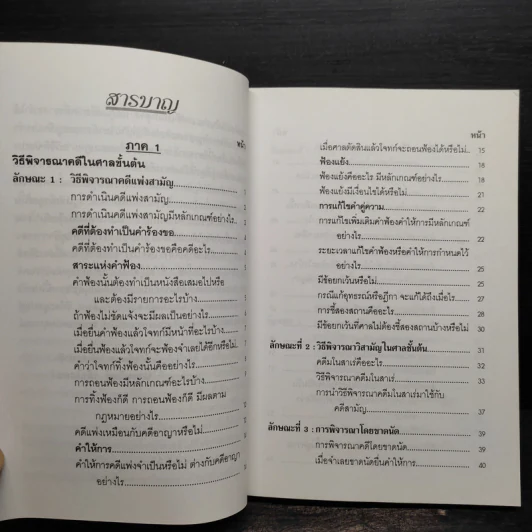 สารบาญ
ภาค 1
หน้า
วิธีพิจารณาคดีในศาลชั้นต้น
ลักษณะ 1 : วิธีพิจารณาคดีแพ่งสามัญ
การดำเนินคดีแพ่งสามัญ
การดำเนินคดีแพ่งสามัญมีหลักเกณฑ์อย่างไร
คดีที่ต้องทำเป็นคำร้องขอ
คดีที่ต้องทำเป็นคำร้องขอคือคดีอะไร
สาระแห่งคำฟ้อง
คำฟ้องนั้นต้องทำเป็นหนังสือเสมอไปหรือ
และต้องมีรายการอะไรบ้าง
ถ้าฟ้องไม่ชัดแจ้งจะมีผลเป็นอย่างไร
เมื่อยื่นคำฟ้องแล้วโจทก์มีหน้าที่อะไรบ้าง
เมื่อยื่นฟ้องแล้วโจทก์จะฟ้องจำเลยได้อีกหรือไม่
คำว่าโจทก์ทิ้งฟ้องนั้นคืออย่างไร
การถอนฟ้องมีหลักเกณฑ์อะไรบ้าง
การทิ้งฟ้องก็ดี การถอนฟ้องก็ดี มีผลตาม
กฎหมายอย่างไร
คดีแพ่งเหมือนกับคดีอาญาหรือไม่
คำให้การ
คำให้การคดีแพ่งจำเป็นหรือไม่ ต่างกับคดีอาญา
อย่างไร
หน้า
เมื่อศาลตัดสินแล้วโจทก์จะถอนฟ้องได้หรือไม่.. 15
ฟ้องแย้ง 18
ฟ้องแย้งคืออะไร มีหลักเกณฑ์อย่างไร 18
ฟ้องแย้งมีเงื่อนไขได้หรือไม่ 21
การแก้ไขคำคู่ความ 22
การแก้ไขเพิ่มเติมคำฟ้องคำให้การมีหลักเกณฑ์
อย่างไร 22
ระยะเวลาแก้ไขคำฟ้องหรือคำให้การกำหนดไว้
อย่างไร 25
มีข้อยกเว้นหรือไม่ 25
กรณีแก้อุทธรณ์หรือฎีกา จะแก้ได้ถึงเมื่อไร 25
การชี้สองสถานคืออะไร 28
มีข้อยกเว้นที่ศาลไม่ต้องชี้สองสถานบ้างหรือไม่ 30
ลักษณะที่ 2 : วิธีพิจารณาวิสามัญในศาลชั้นต้น 31
คดีมโนสาเร่คืออะไร 32
วิธีพิจารณาคดีมโนสาเร่ 33
การนำวิธีพิจารณาคดีมโนสาเร่มาใช้กับ
คดีสามัญ 37
ลักษณะที่ 3 : การพิจารณาโดยขาดนัด 39
การพิจารณาคดีโดยขาดนัด 39
เมื่อจำเลยขาดนัดยื่นคำให้การ 40